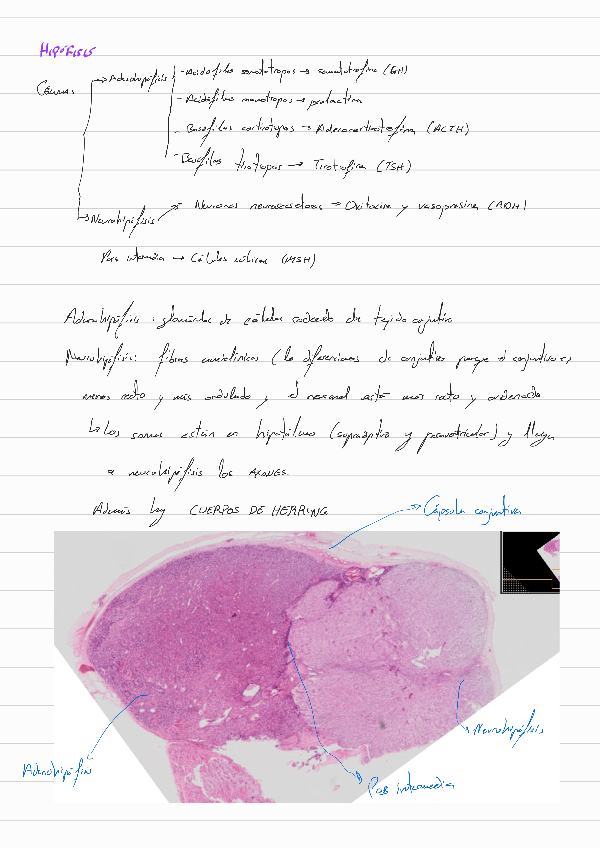 HIPÓFISIS
Células
→ Adenohipófisis
- Acidofilas somatotropas → somatotrofina (GH)
- Acidofilas mamotropas → prolactina
- Basofilas cortictropas → Adenocorticotrofina (ACTH)
- Basofilas tirotropas → Tirotrofina (TSH)
→ Neurohipófisis → Neuronas neurosecretoras → Oxitocina y vasopresina (ADH)
Pars intermedia → Células (MSH)
Adenohipófisis : glomérulos de células rodeado de tejido conjuntivo
Neurohipófisis: fibras amielínicas (lo diferenciamos de conjuntivo porque el conjuntivo es
menos recto y más ondulado y el neuronal está más recto y ordenado
↳ Los somas están en hipotálamo (supraóptico y paraventricular) y llegan
a neurohipófisis los AXONES.
Además hay CUERPOS DE HERRING
→ Cápsula conjuntiva
Neurohipófisis
Adenohipófisis
Pars intermedia